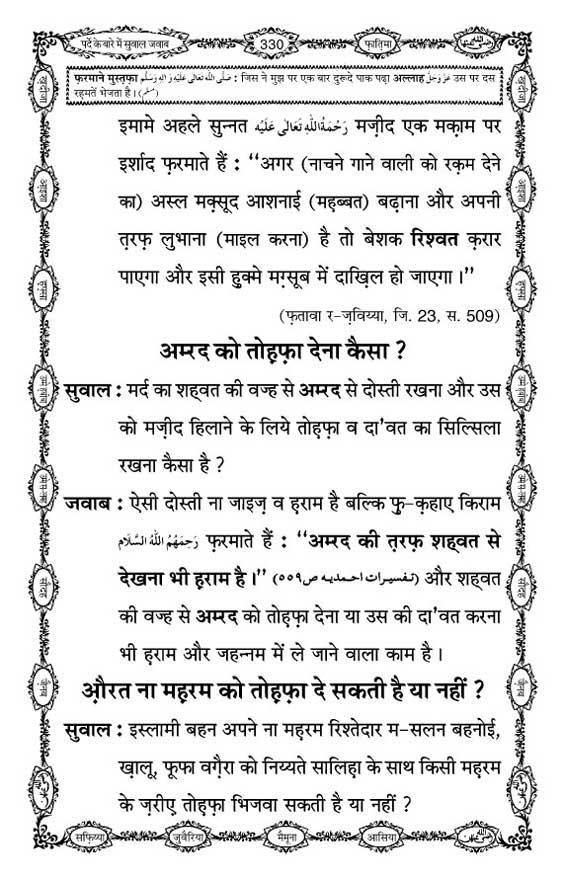 पर्दे के बारे में सुवाल जवाब
330
फ़ातिमा
फ़रमाने मुस्तफ़ा صَلَّى اللهُ تَعَالٰى عَلَيْهِ وَاٰلِهٖ وَسَلَّم : जिस ने मुझ पर एक बार दुरूदे पाक पढ़ा अल्लाह عَزَّوَجَلَّ उस पर दस
रहमतें भेजता है । (مسلم)
इमामे अहले सुन्नत رَحْمَةُ اللهِ تَعَالٰى عَلَيْه मज़ीद एक मक़ाम पर
इर्शाद फ़रमाते हैं : “अगर (नाचने गाने वाली को रक़म देने
का) अस्ल मक़्सूद आशनाई (महब्बत) बढ़ाना और अपनी
त़रफ़ लुभाना (माइल करना) है तो बेशक रिश्वत क़रार
पाएगा और इसी हुक्मे मग़्सूब में दाख़िल हो जाएगा ।”
(फ़तावा र-ज़विय्या, जि. 23, स. 509)
अम्रद को तोह़फ़ा देना कैसा ?
सुवाल : मर्द का शहवत की वज्ह से अम्रद से दोस्ती रखना और उस
को मज़ीद हिलाने के लिये तोह़फ़ा व दा'वत का सिल्सिला
रखना कैसा है ?
जवाब : ऐसी दोस्ती ना जाइज़ व ह़राम है बल्कि फु-क़हाए किराम
رَحِمَهُمُ اللهُ السَّلَام फ़रमाते हैं : “अम्रद की त़रफ़ शह्वत से
देखना भी ह़राम है ।” (تفسیرات احمدیہ ص٥٥٩) और शह्वत
की वज्ह से अम्रद को तोह़फ़ा देना या उस की दा'वत करना
भी ह़राम और जहन्नम में ले जाने वाला काम है ।
औ़रत ना मह़रम को तोह़फ़ा दे सकती है या नहीं ?
सुवाल : इस्लामी बहन अपने ना मह़रम रिश्तेदार म-सलन बहनोई,
ख़ालू, फूफा वग़ैरा को निय्यते सालिह़ा के साथ किसी मह़रम
के ज़रीए तोह़फ़ा भिजवा सकती है या नहीं ?
सफ़िय्या
जुवैरिया
मैमूना
आसिया